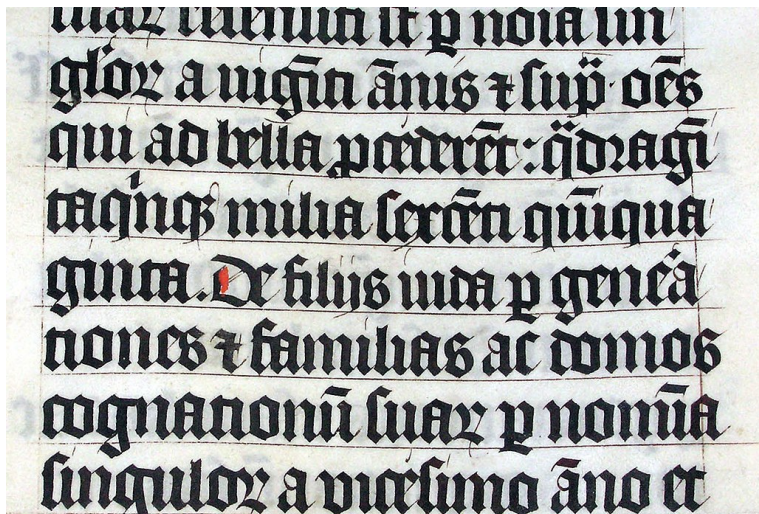 suaꝝ recensiti sūt ꝑ noīa sin
gloꝝ a uigīti ānis ⁊ sup̄. oēs
qui ad bella ꝓcederēt: qͣdragī
taqⁱnqꝫ milia sexcēti quīqua
ginta. De filijs iuda ꝑ genea
tiones ⁊ familias ac domos
cognationū suaꝝ ꝑ nomīa
singuloꝝ a vicesimo āno et